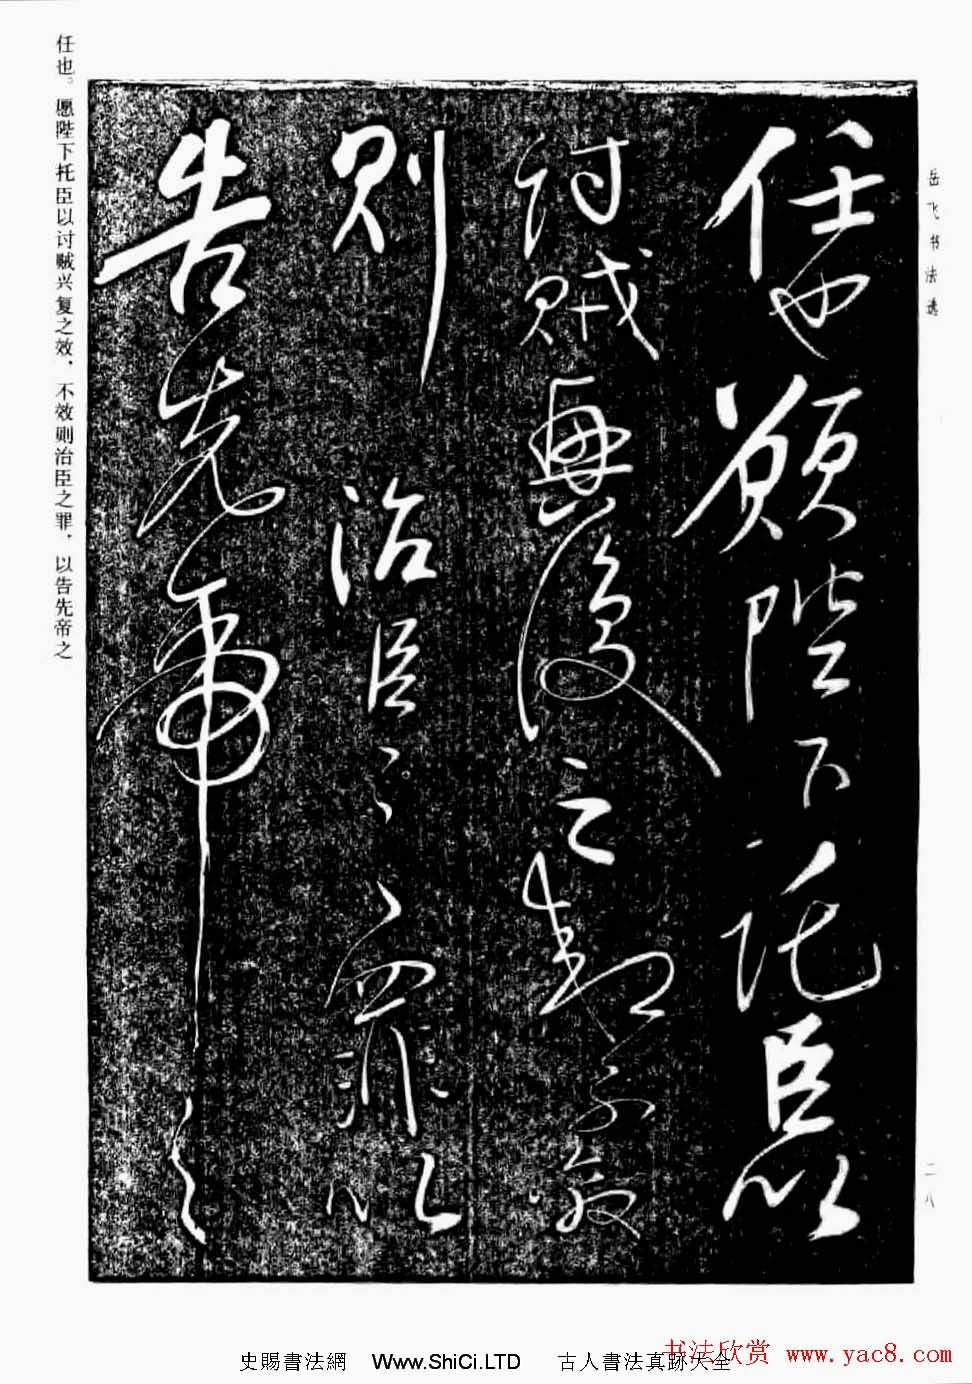 岳飞书法选
二八
任也願陛下託臣以
討賊興復之效不效
則治臣之罪以
告先帝之
任也。愿陛下托臣以讨贼兴复之效，不效则治臣之罪，以告先帝之
书法欣赏 www.yac8.com
史賜書法網 Www.ShiCi.LTD 古人書法真跡大全